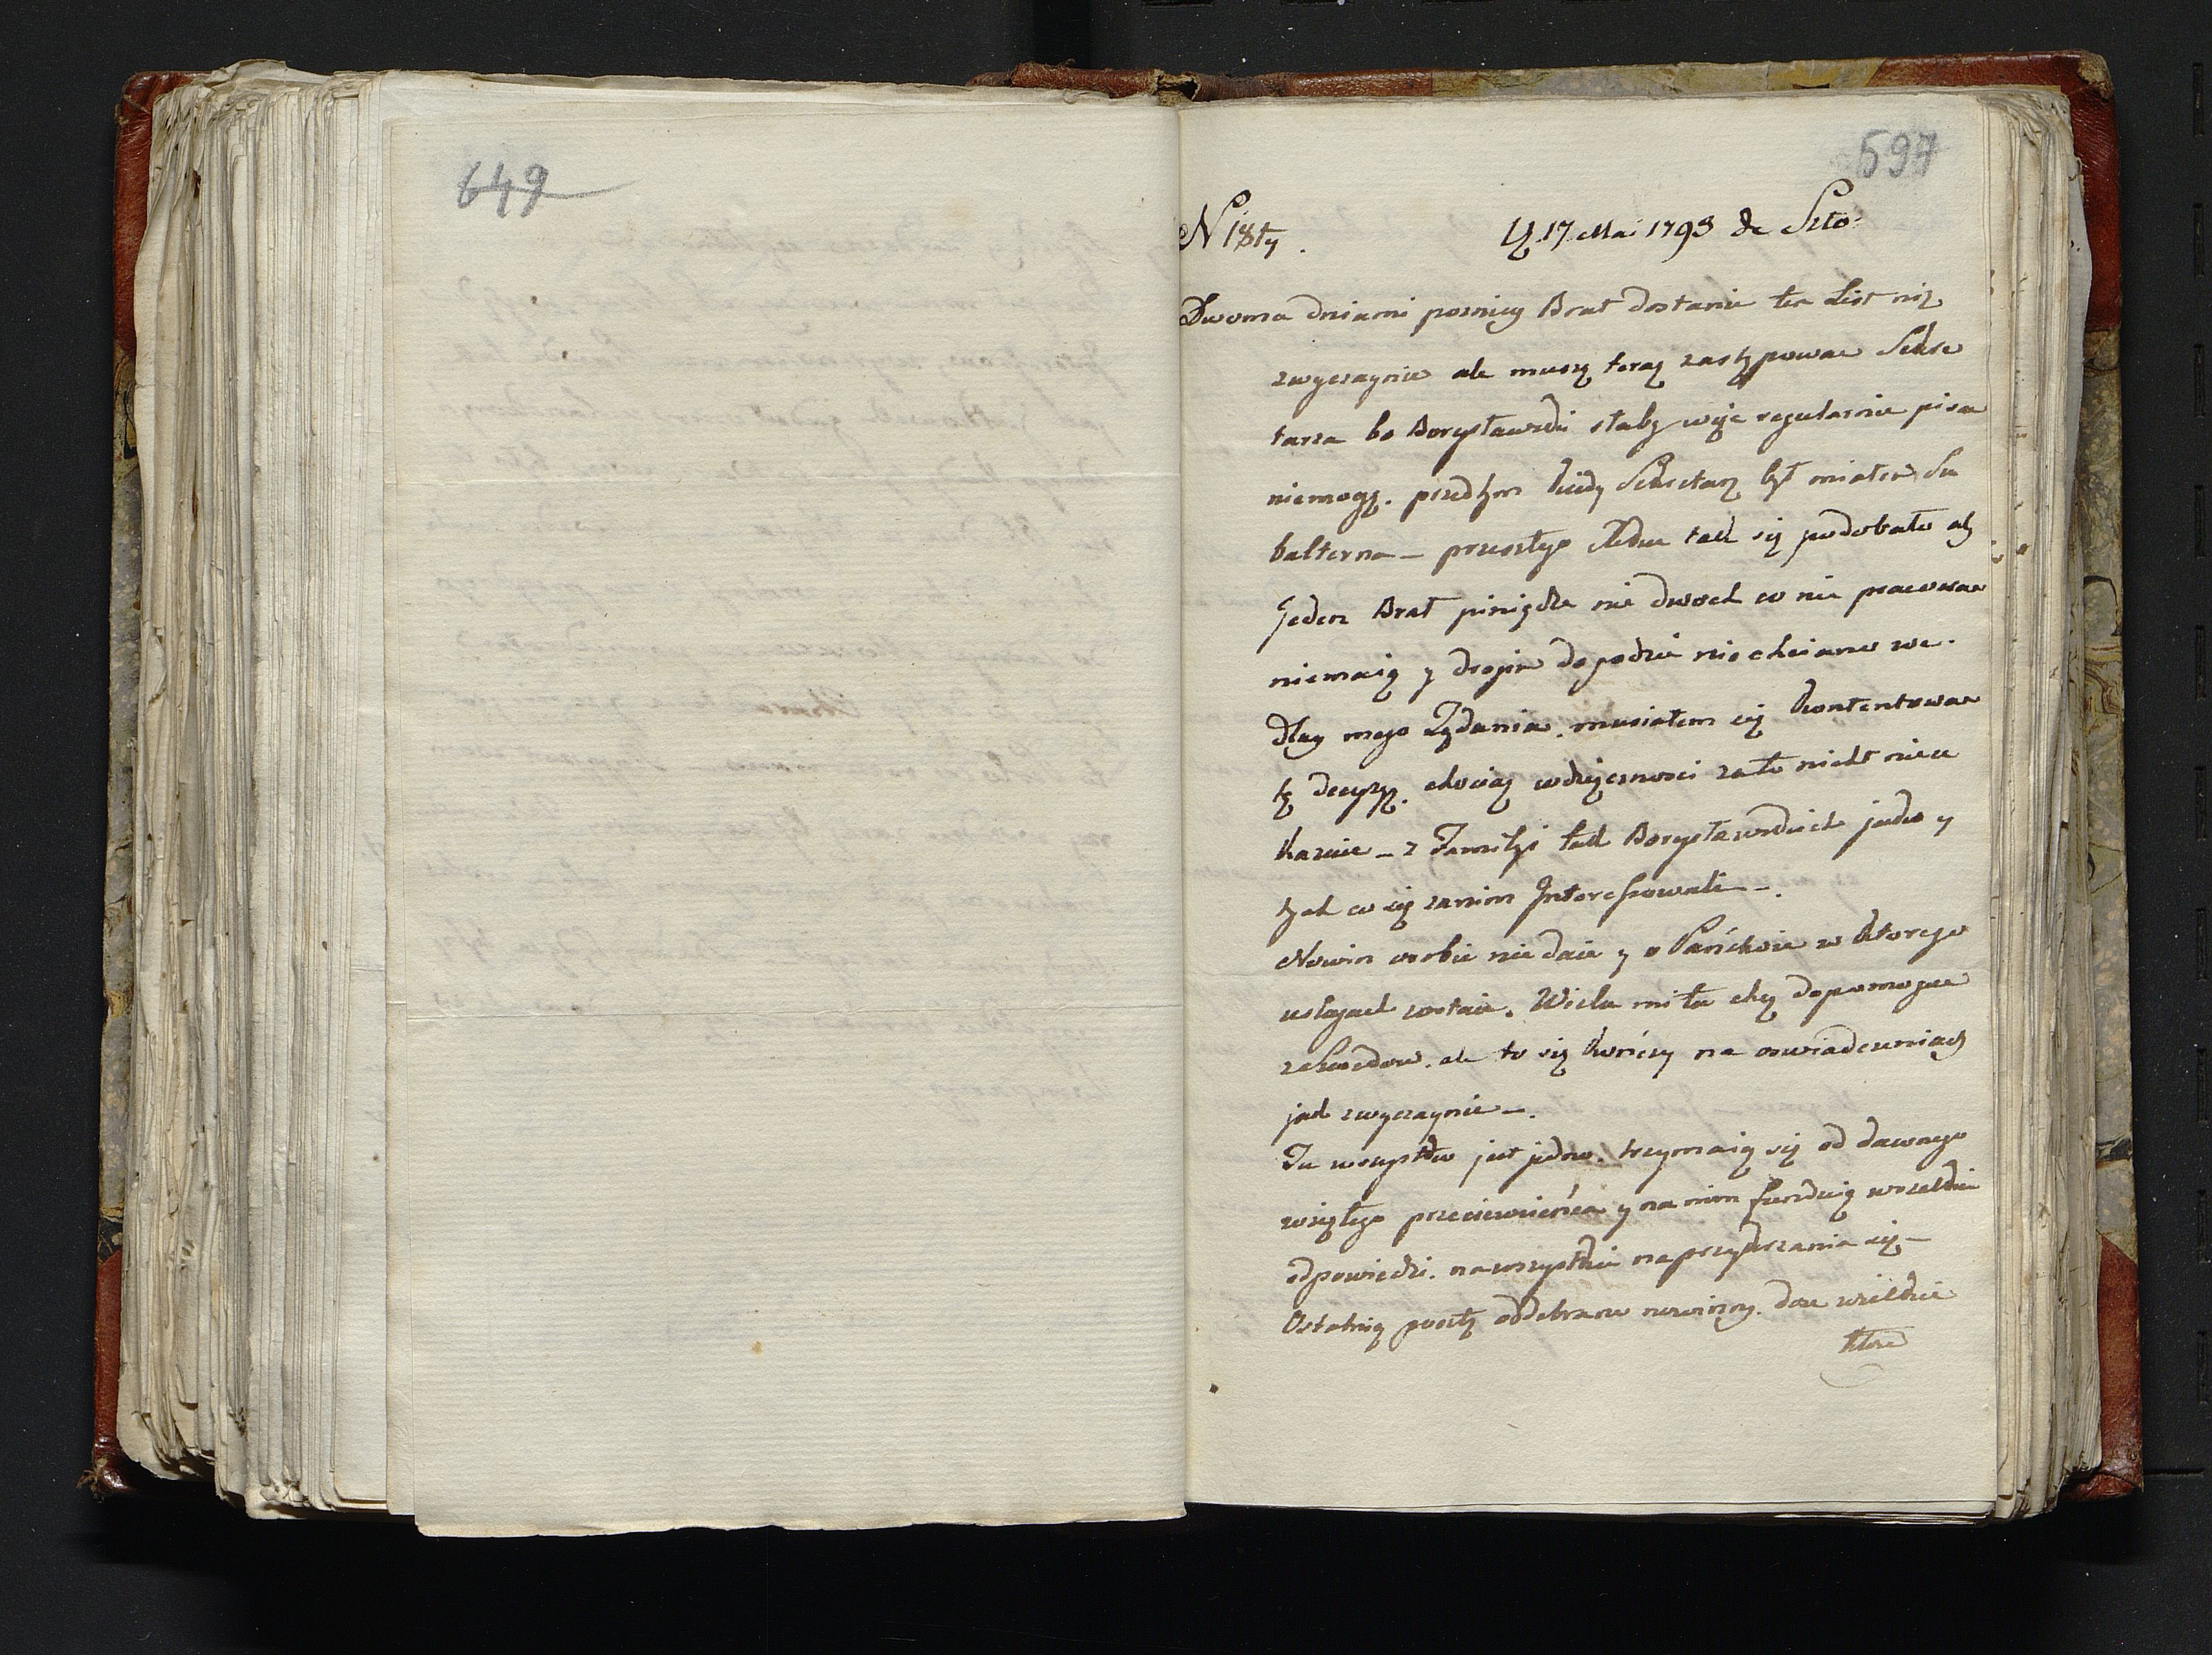 649
597
N 18ty. D. 17 Mai 1793 de Szto:
Dwoma dniami pozniey Brat dostanie ten List niz
zwyczaynie ale muszę teraz zastępowac Sekre
tarza bo Borysławski słaby więc regularnie pisac
niemogę. przedtym kiedy Sekretarz był miałem Su
balterna – przeszłego Roku tak się podobało aby
Jeden Brał pieniądze nie dwoch co nic pracowac
niemaią y do godzin niechciano we.
dług mego Żądania. musiałem się kontentowac
tę decyzyą. chociaż wdzięcznosci zato nicht nieu
kazuie – z Familyi tak Borysławskich jako y
tych co się zanim Interessowali –.
Nowin osobie nie daie y o Państwie w ktorego
usługach zostaie. Wielu mi tu chcą dopomagac
ze Szwedow. ale to się kończy na oswiadczeniach
jak zwyczaynie –.
Tu wszystko jest jedno. trzymaią się od dawnego
wziętego przeciewzięcia y na nim funduią wszelkie
odpowiedzi. na wszystkie naprzykrzania się –
Ostatnią pocztą oddebrane nowiny. są wielkie
ktore